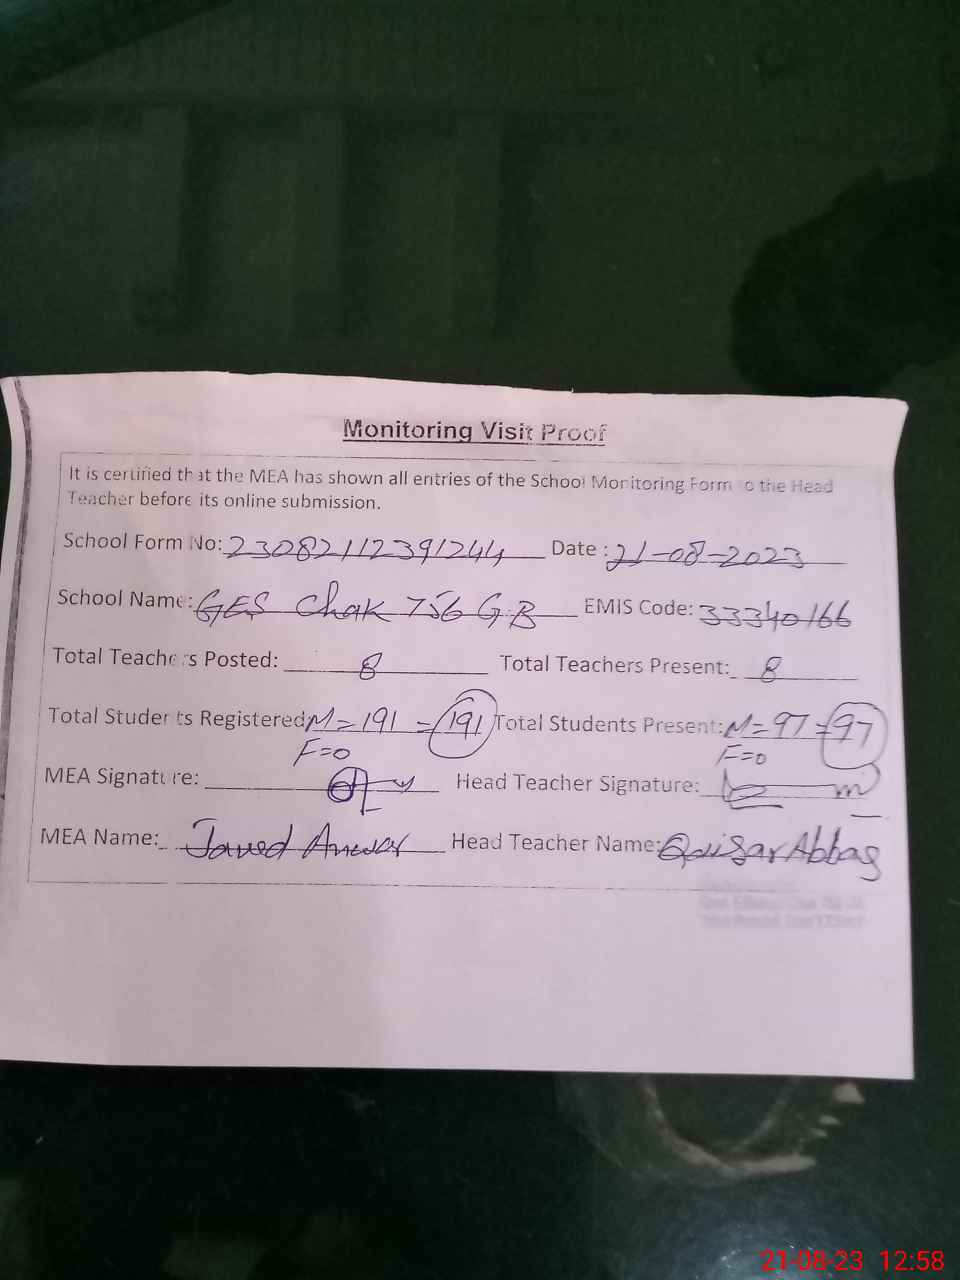 Monitoring Visit Proof
It is certified that the MEA has shown all entries of the School Monitoring Form to the Head
Teacher before its online submission.
School Form No: 23082112391244 Date : 21-08-2023
School Name: GES Chak 756 G.B EMIS Code: 33340166
Total Teachers Posted: 8 Total Teachers Present: 8
Total Students Registered M=191 = 191 Total Students Present: M=97 = 97
F=0 F=0
MEA Signature: Head Teacher Signature:
MEA Name: Javed Anwar Head Teacher Name: Qaisar Abbas
21-08-23 12:58